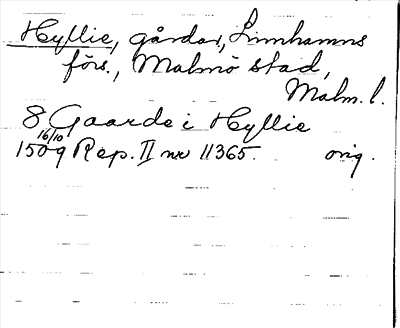 Hyllie, gårdar, Limhamns
förs., Malmö stad,
Malm. l.
8 Gaarde i Hyllie
16/10
1509 Rep. II nr 11365. orig.